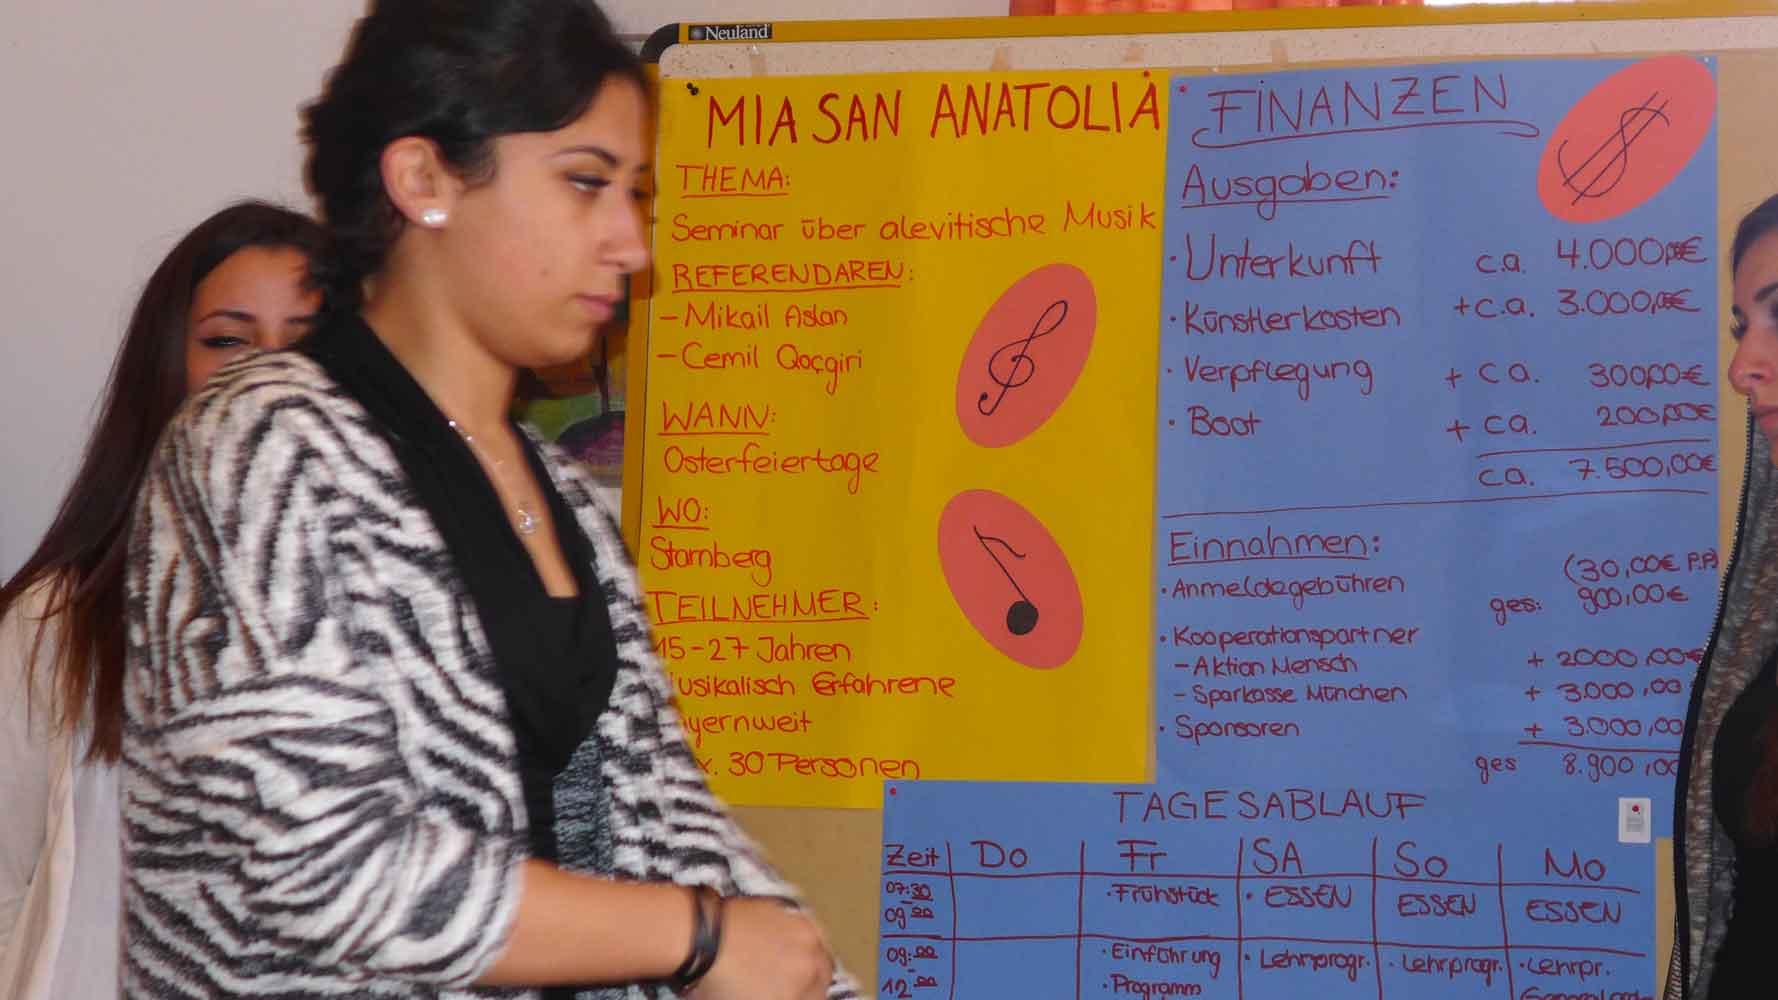 Neuland
MIA SAN ANATOLIA
THEMA:
Seminar über alevitische Musik
REFERENDAREN:
- Mikail Aslan
- Cemil Qoçgiri
WANN:
Osterfeiertage
WO:
Starnberg
TEILNEHMER:
15-27 Jahren
usikalisch Erfahrene
yernweit
x. 30 Personen
FINANZEN
Ausgaben:
· Unterkunft c.a. 4.000,00€
· Künstlerkosten +c.a. 3.000,00€
· Verpflegung + ca. 300,00€
· Boot + ca. 200,00€
ca. 7.500,00€
Einnahmen:
(30,00€ P.P)
· Anmeldegebühren ges: 900,00€
· Kooperationspartner
- Aktion Mensch + 2000,00€
- Sparkasse München + 3.000,00
· Sponsoren + 3.000,00
ges 8.900,00
TAGESABLAUF
Zeit Do Fr SA So Mo
07:30 - 09:00 · Frühstück · ESSEN ESSEN ESSEN
09:00 - 12:00 · Einführung · Lehrprogr. · Lehrprogr. · Lehrpr.
· Programm